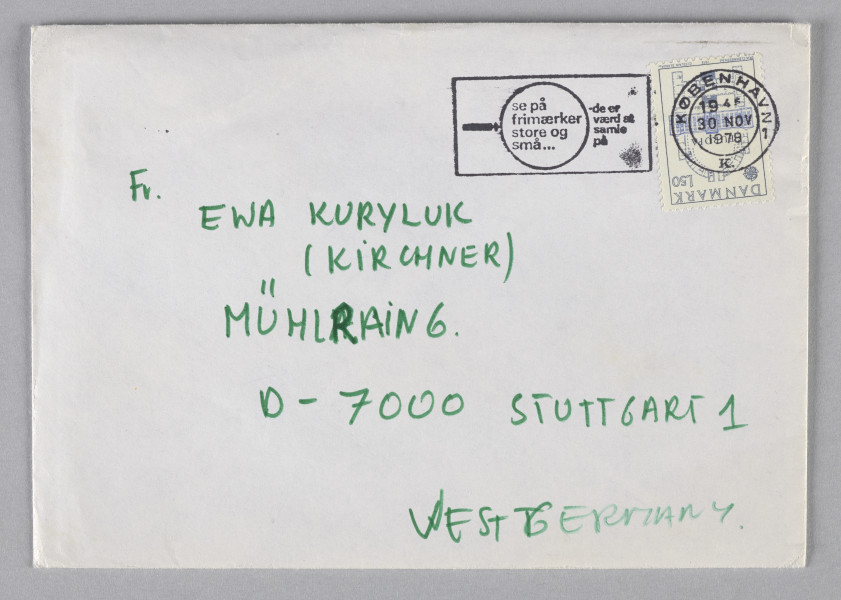 se på
frimærker
store og
små...
-de er
værd at
samle
på
KØBENHAVN
19
30 NOV
1978
K.
1
DANMARK
150
Fr.
EWA KURYLUK
(KIRCHNER)
MÜHLRAIN 6.
D - 7000 STUTTGART 1
WEST GERMANY.